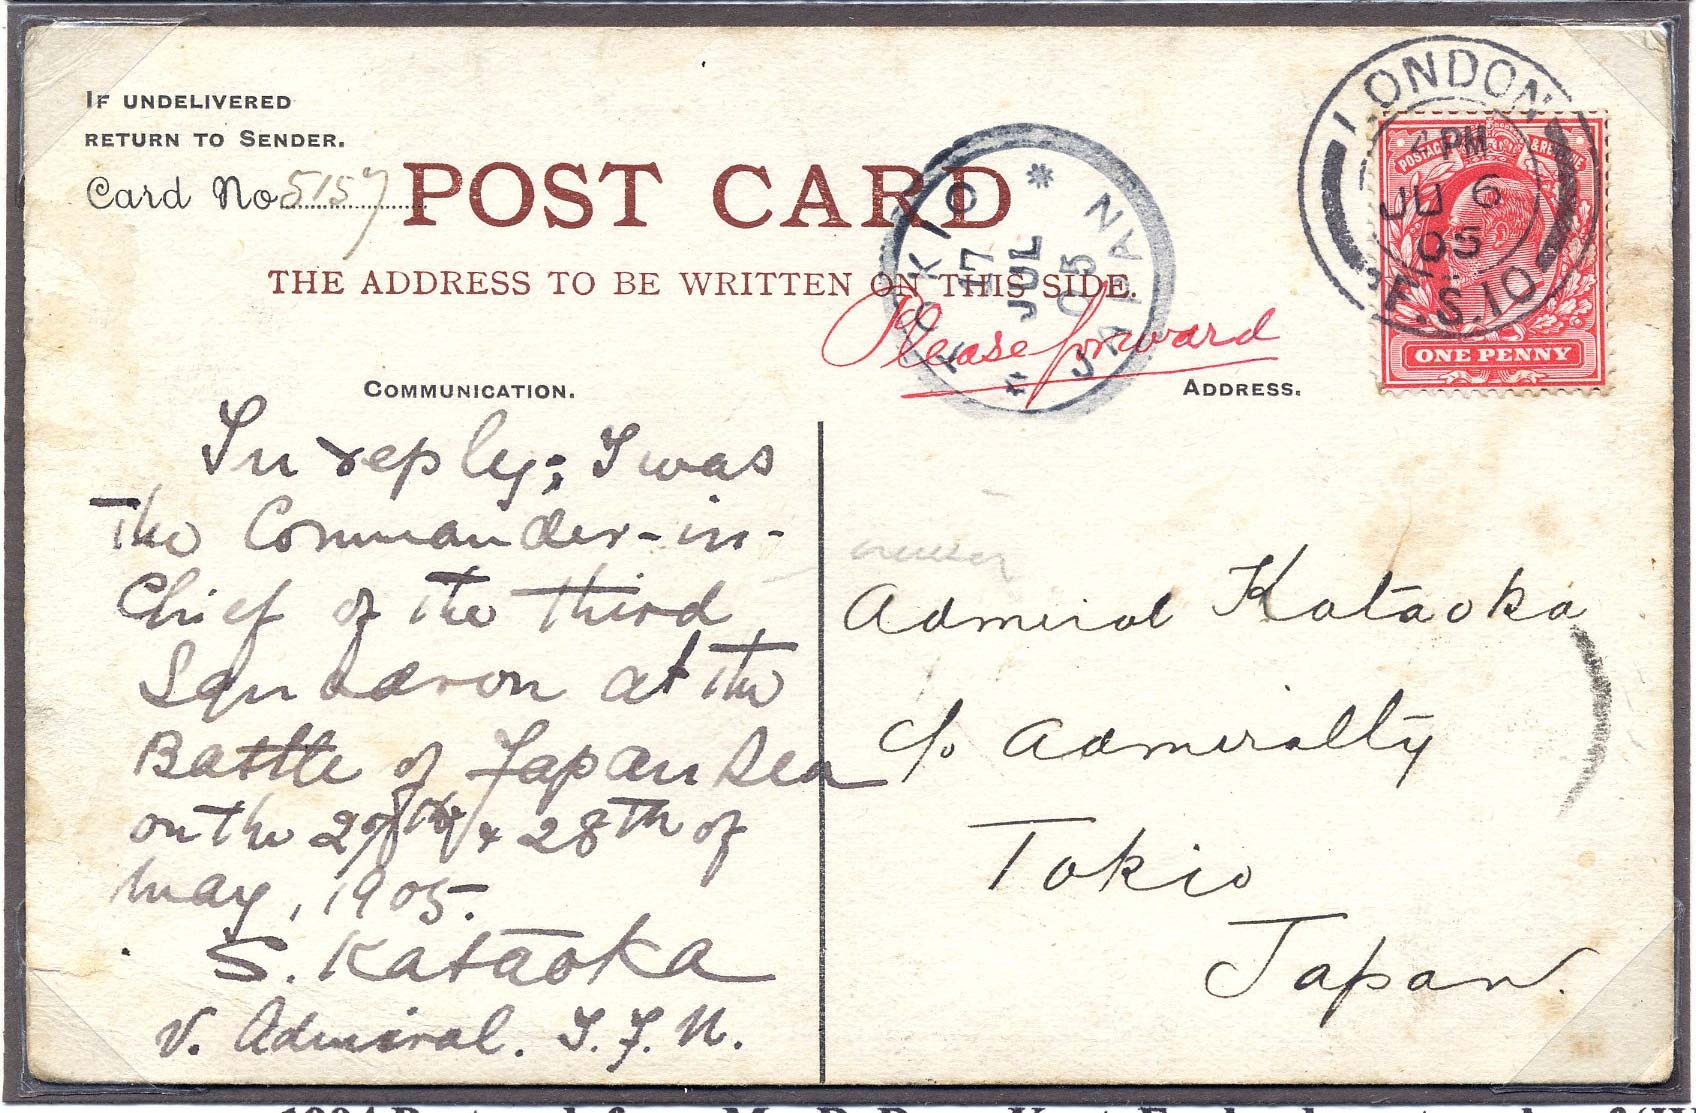 IF UNDELIVERED
RETURN TO SENDER.
Card No 5157
POST CARD
THE ADDRESS TO BE WRITTEN ON THIS SIDE.
TOKIO
17
JUL
05
JAPAN
LONDON
PM
JU 6
05
S.10
POSTAGE & REVENUE
ONE PENNY
Please forward
COMMUNICATION.
ADDRESS.
In reply; I was
the Commander-in-
Chief of the third
Squadron at the
Battle of Japan Sea
on the 27th & 28th of
may, 1905.
S. Kataoka
V. Admiral. I. J. N.
Admiral Kataoka
c/o Admiralty
Tokio
Japan.